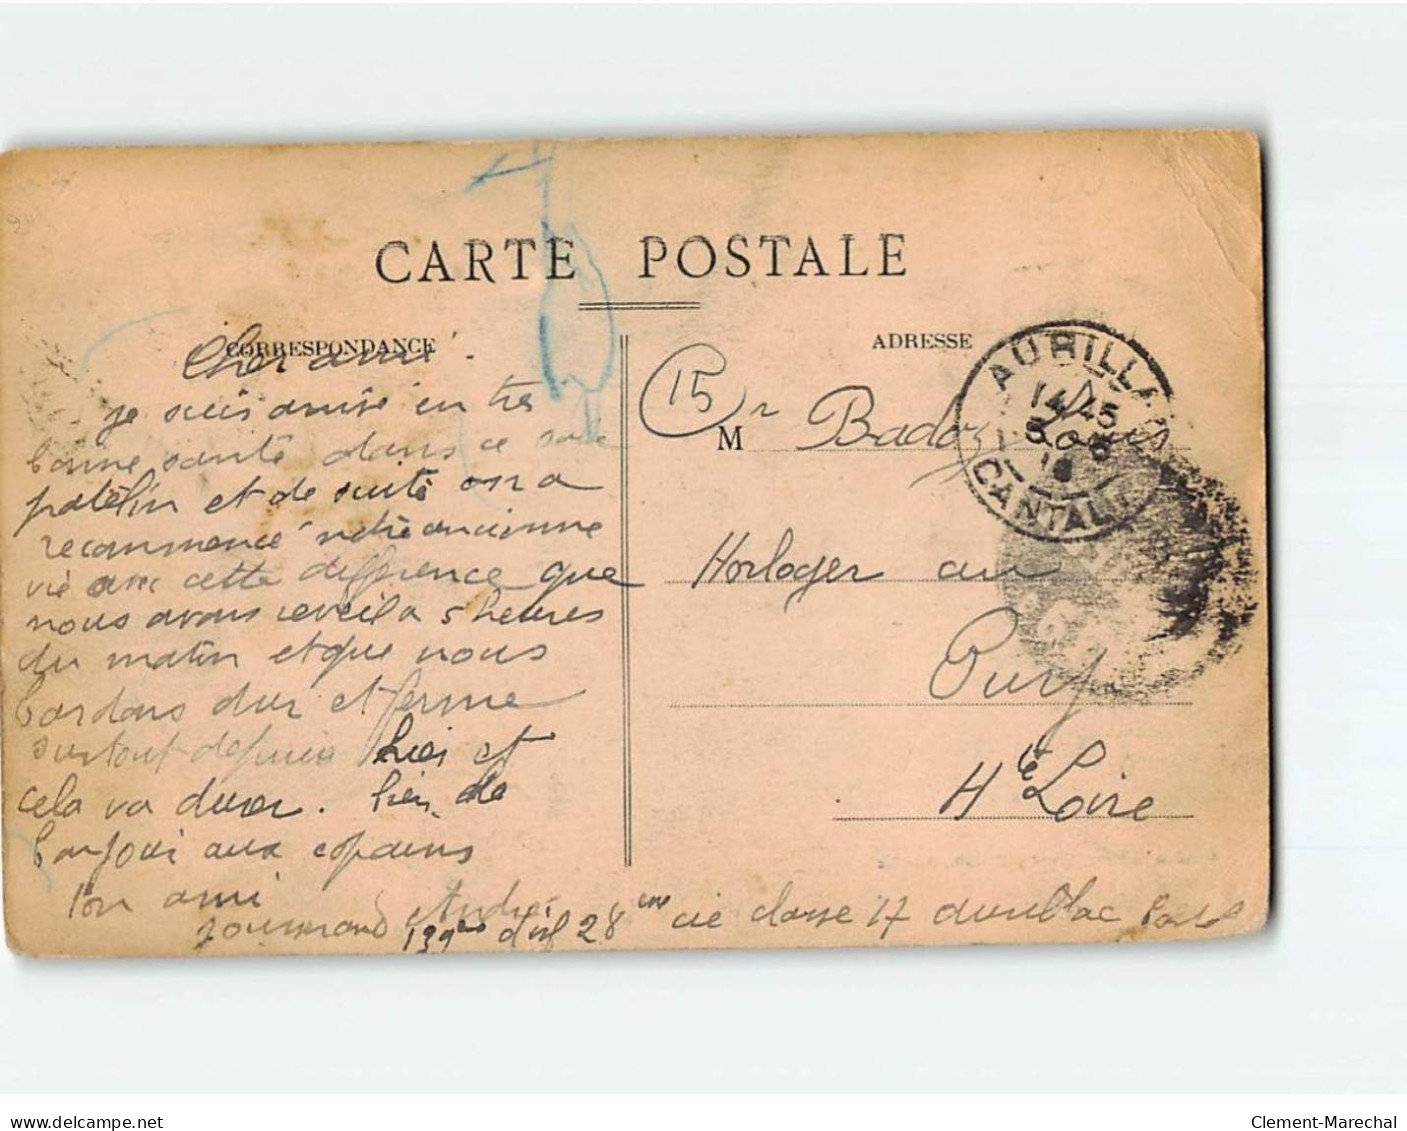 CARTE POSTALE
CORRESPONDANCE
ADRESSE
Cher ami.
je suis arrivé en tres
bonne santé dans ce sale
patelin et de suite on a
recommencé notre ancienne
vie avec cette difference que
nous avons reveil a 5 heures
du matin et que nous
bardons dur et ferme
surtout depuis hier et
cela va durer. bien de
bonjour aux copains
ton ami
André
139eme 28eme cie classe 17 Aurillac
15
Mr
Horloger au
Puy
Hte Loire
AURILLAC
14 45
CANTAL
delcampe.net
Clement-Marechal